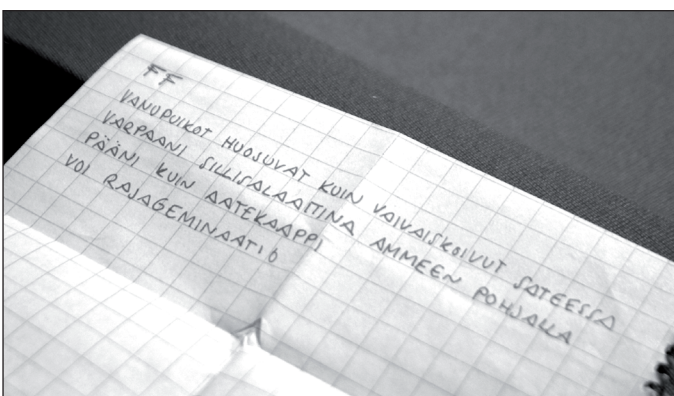 FF
VANUPUIKOT HUOJUVAT KUIN VAIVAISKOIVUT SATEESSA
VARPAANI SILLISALAATTINA AMMEEN POHJALLA
PÄÄNI KUIN AATEKAAPPI
VOI RAJAGEMINAATIO